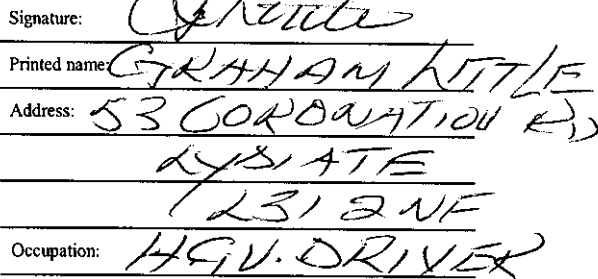 Signature: G Little
Printed name: GRAHAM LITTLE
Address: 53 CORONATION RD
LYDIATE
L31 2NF
Occupation: HGV. DRIVER